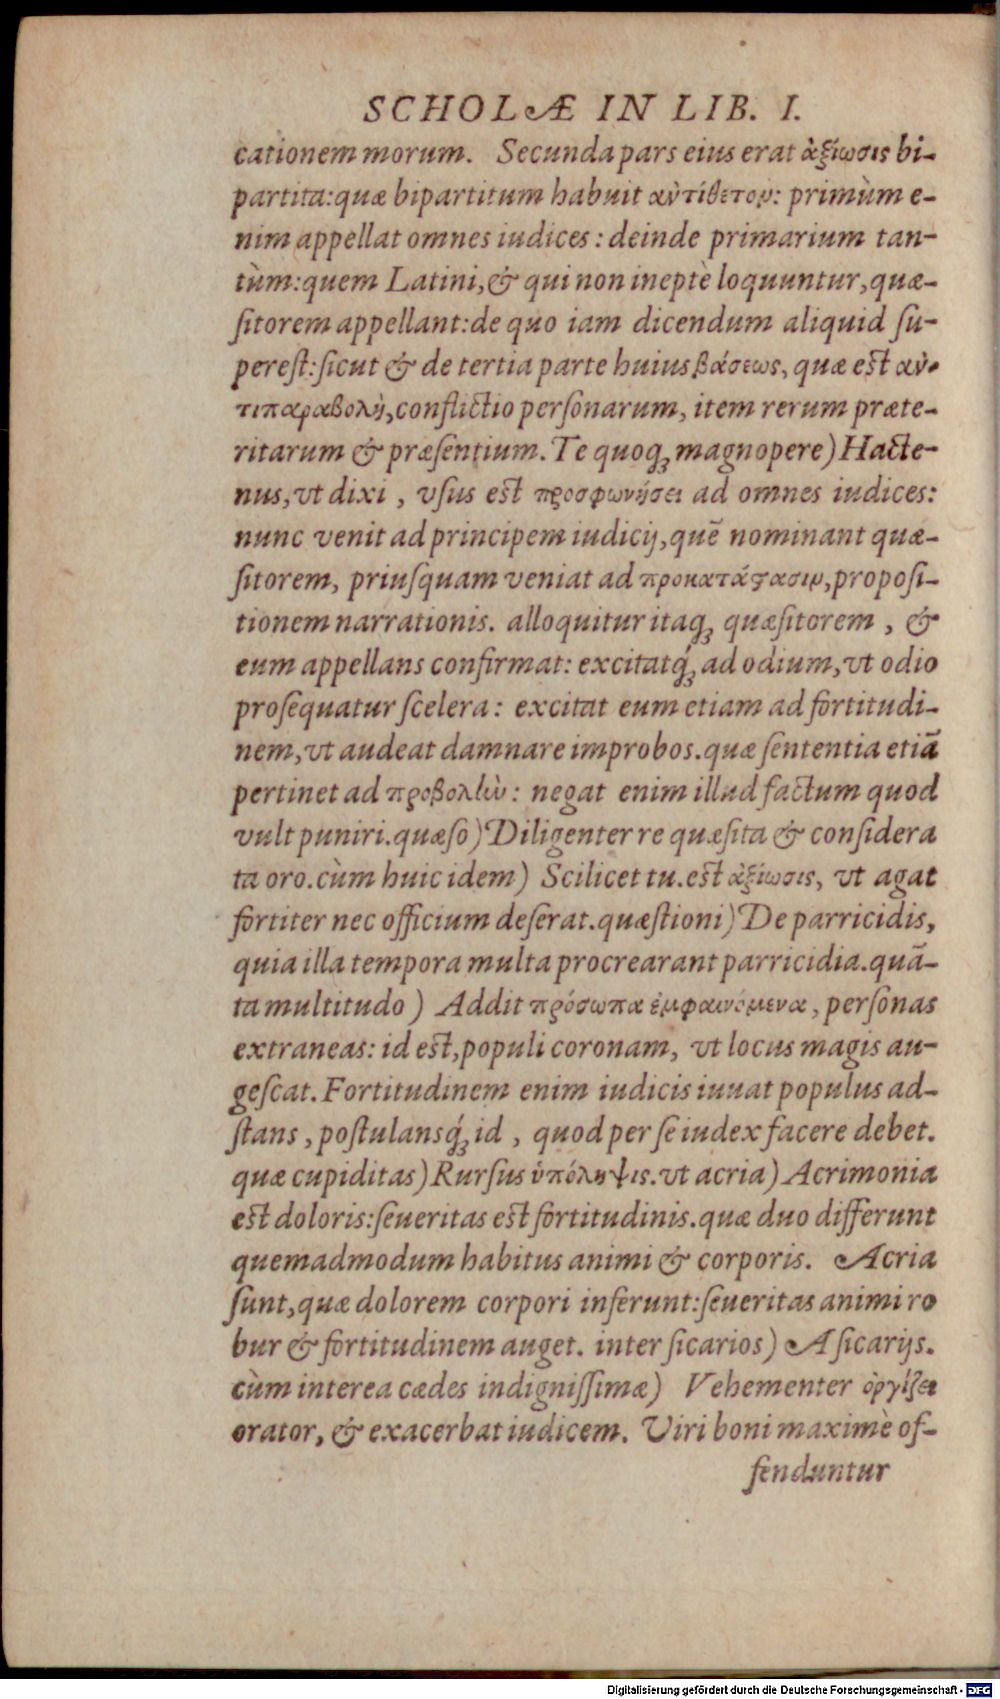 SCHOLÆ IN LIB. I.
cationem morum. Secunda pars eius erat ἀξίωσις bi-
partita: quæ bipartitum habuit ἀντίθετον: primùm e-
nim appellat omnes iudices : deinde primarium tan-
tùm: quem Latini, & qui non ineptè loquuntur, quæ-
ſitorem appellant: de quo iam dicendum aliquid ſu-
pereſt: ſicut & de tertia parte huius βάσεως, quæ eſt ἀν-
τιπαραβολὴ, conflictio perſonarum, item rerum præte-
ritarum & præſentium. Te quoqꝫ magnopere) Hacte-
nus, vt dixi , vſus eſt προσφωνήσει ad omnes iudices:
nunc venit ad principem iudicij, quē nominant quæ-
ſitorem, priuſquam veniat ad προκατάστασιν, propoſi-
tionem narrationis. alloquitur itaqꝫ quæſitorem , &
eum appellans confirmat: excitatqꝫ́ ad odium, vt odio
proſequatur ſcelera : excitat eum etiam ad fortitudi-
nem, vt audeat damnare improbos. quæ ſententia etiā
pertinet ad προβολὴν : negat enim illud factum quod
vult puniri. quæſo) Diligenter re quæſita & conſidera
ta oro. cùm huic idem) Scilicet tu. eſt ἀξίωσις, vt agat
fortiter nec officium deſerat. quæſtioni) De parricidis,
quia illa tempora multa procrearant parricidia. quā-
ta multitudo ) Addit πρόσωπα ἐμφαινόμενα, perſonas
extraneas: id eſt, populi coronam, vt locus magis au-
geſcat. Fortitudinem enim iudicis iuuat populus ad-
ſtans , poſtulansqꝫ́ id , quod per ſe iudex facere debet.
quæ cupiditas) Rurſus ὑπόληψις. vt acria) Acrimonia
eſt doloris: ſeueritas eſt fortitudinis. quæ duo differunt
quemadmodum habitus animi & corporis. Acria
ſunt, quæ dolorem corpori inferunt: ſeueritas animi ro
bur & fortitudinem auget. inter ſicarios) A ſicarijs.
cùm interea cædes indigniſſimæ) Vehementer ὀργίζει
orator, & exacerbat iudicem. Viri boni maximè of-
fenduntur
Digitalisierung gefördert durch die Deutsche Forschungsgemeinschaft - DFG